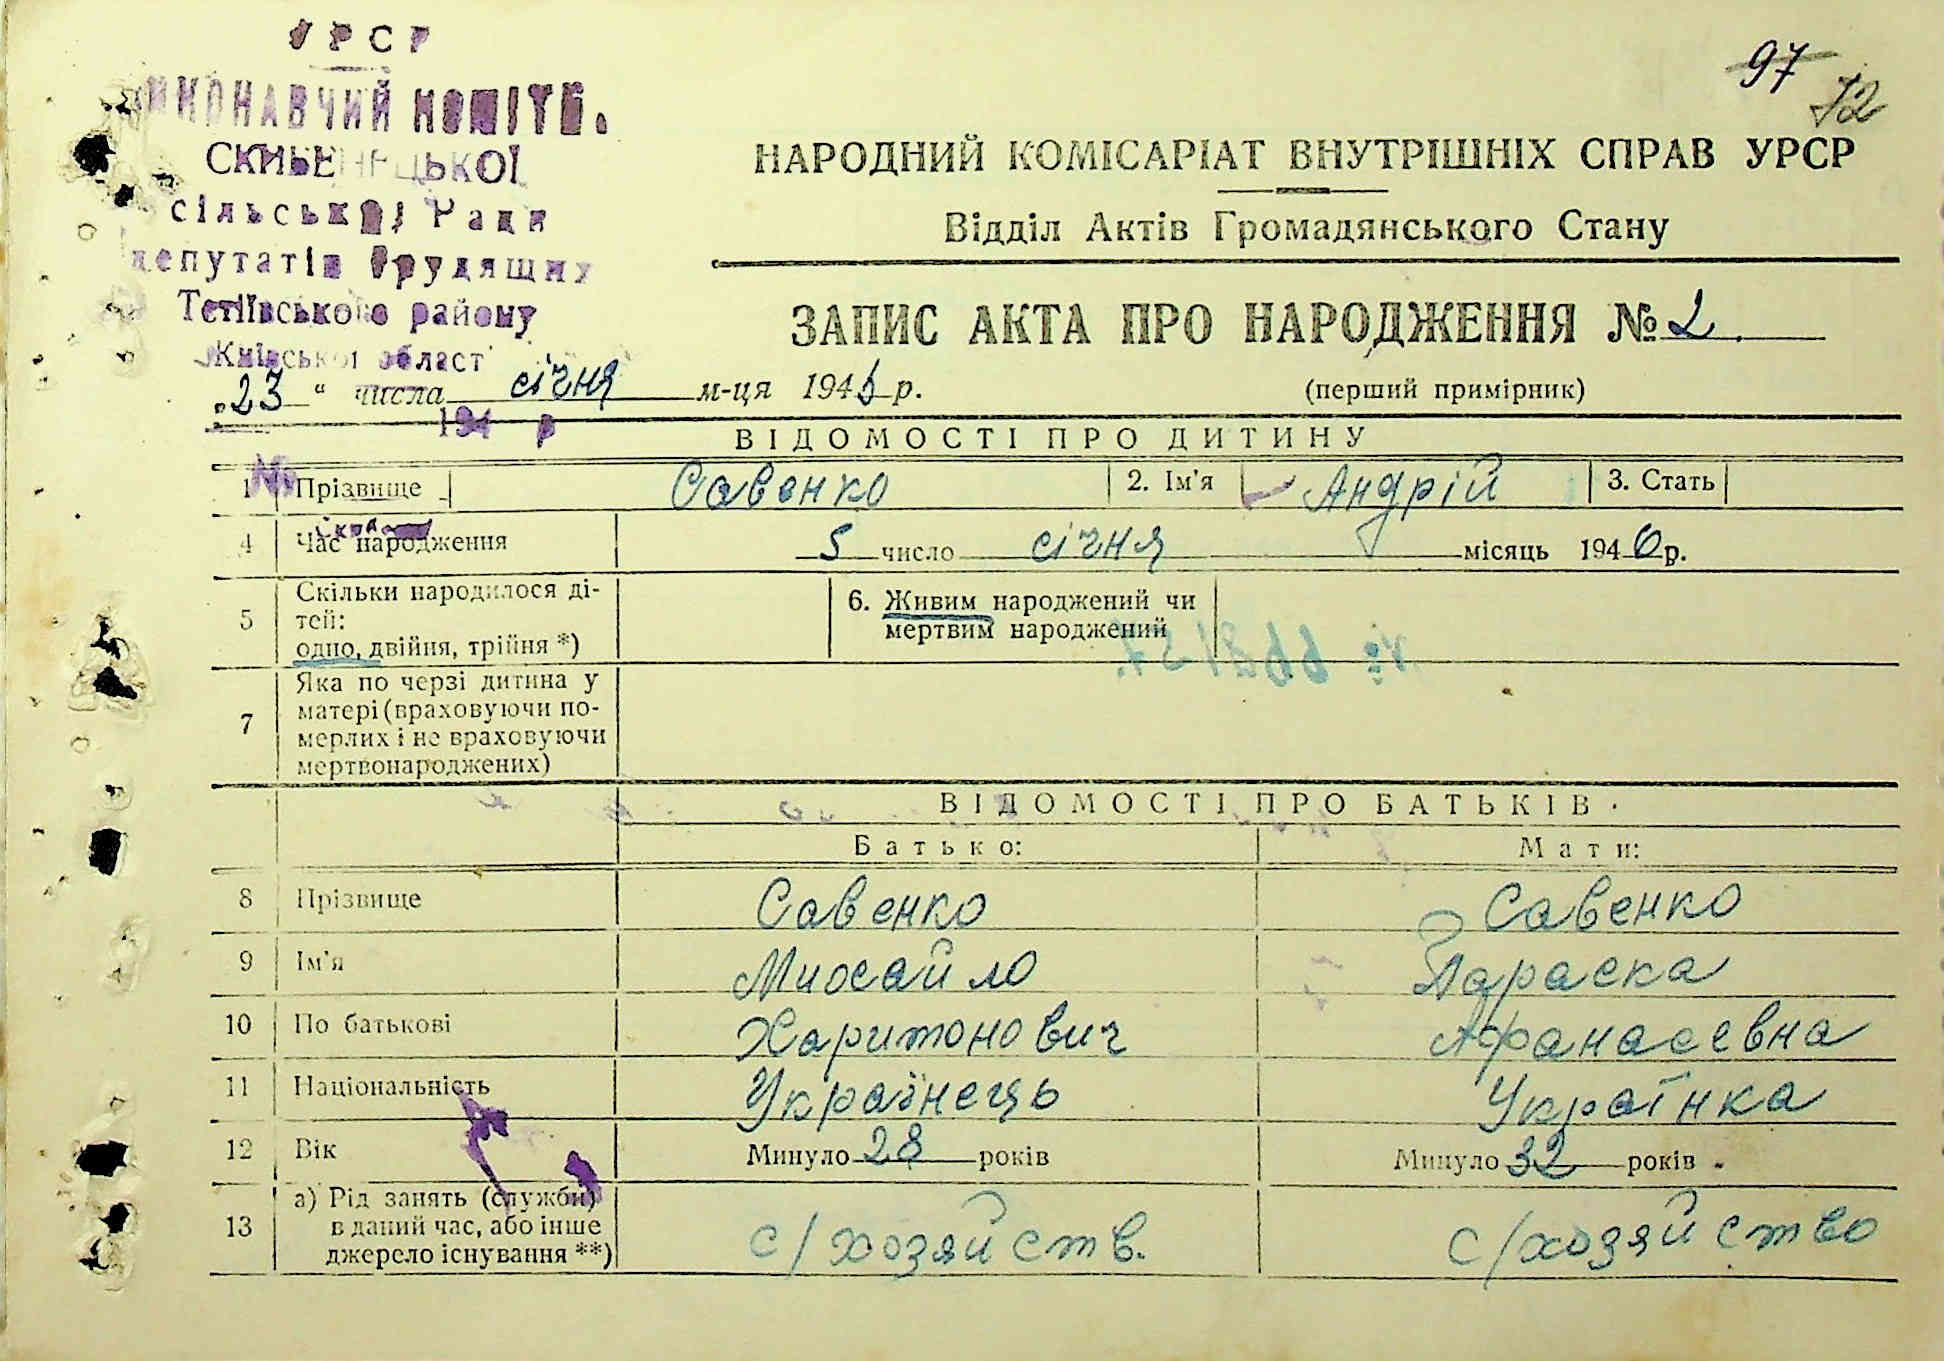 УРСР
97
72
ВИКОНАВЧИЙ КОМІТЕ.
СКИБЕНЕЦЬКОЇ
сільської Ради
депутатів Трудящих
Тетіївського району
Київської област
194 р
№
НАРОДНИЙ КОМІСАРІАТ ВНУТРІШНІХ СПРАВ УРСР
Відділ Актів Громадянського Стану
ЗАПИС АКТА ПРО НАРОДЖЕННЯ № 2
„23“ числа січня м-ця 1946 р.
(перший примірник)
ВІДОМОСТІ ПРО ДИТИНУ
1 Прізвище Савенко 2. Ім'я Андрій 3. Стать
4 Час народження 5 число січня місяць 1946 р.
5 Скільки народилося ді-
тей:
одно, двійня, трійня *)
6. Живим народжений чи
мертвим народжений
7 Яка по черзі дитина у
матері (враховуючи по-
мерлих і не враховуючи
мертвонароджених)
ВІДОМОСТІ ПРО БАТЬКІВ
Батько: Мати:
8 Прізвище Савенко Савенко
9 Ім'я Михайло Параска
10 По батькові Харитонович Афанасевна
11 Національність Українець Українка
12 Вік Минуло 28 років Минуло 32 років
13 а) Рід занять (служби)
в даний час, або інше
джерело існування **)
с/хозяйств. с/хозяйство